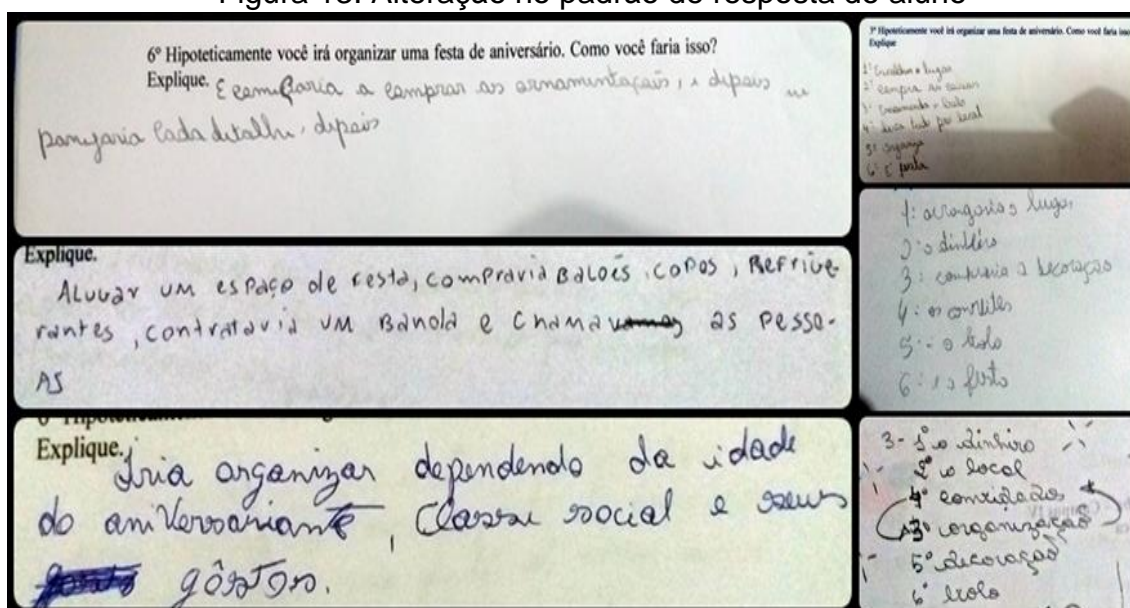 Figura 18: Alteração no padrão de resposta do aluno
6º Hipoteticamente você irá organizar uma festa de aniversário. Como você faria isso?
Explique. comsaria a comprar as ornamentaçais, i depais
cada detalhe, depais
Explique.
ALUGAR UM ESPAÇO de festa, compravia Balões, copos, Refrige-
rantes, contratavia um Banda e chama as pesso-
AS
Explique.
Iria organizar dependendo da idade
do aniversariante, Classe social e seus
gôstos.
3º Hipoteticamente você irá organizar uma festa de aniversário. Como você faria isso
Explique
1º lugar
2º compra
3º o bolo
4º local
5º organiza
6º É festa
1: o lugar
2: o dinhero
3: compraria a decoração
4: os convites
5: o bolo
6: festa
3- 1º o dinhiro
2º o local
4º convidados
3º organização
5º decoração
6º bolo